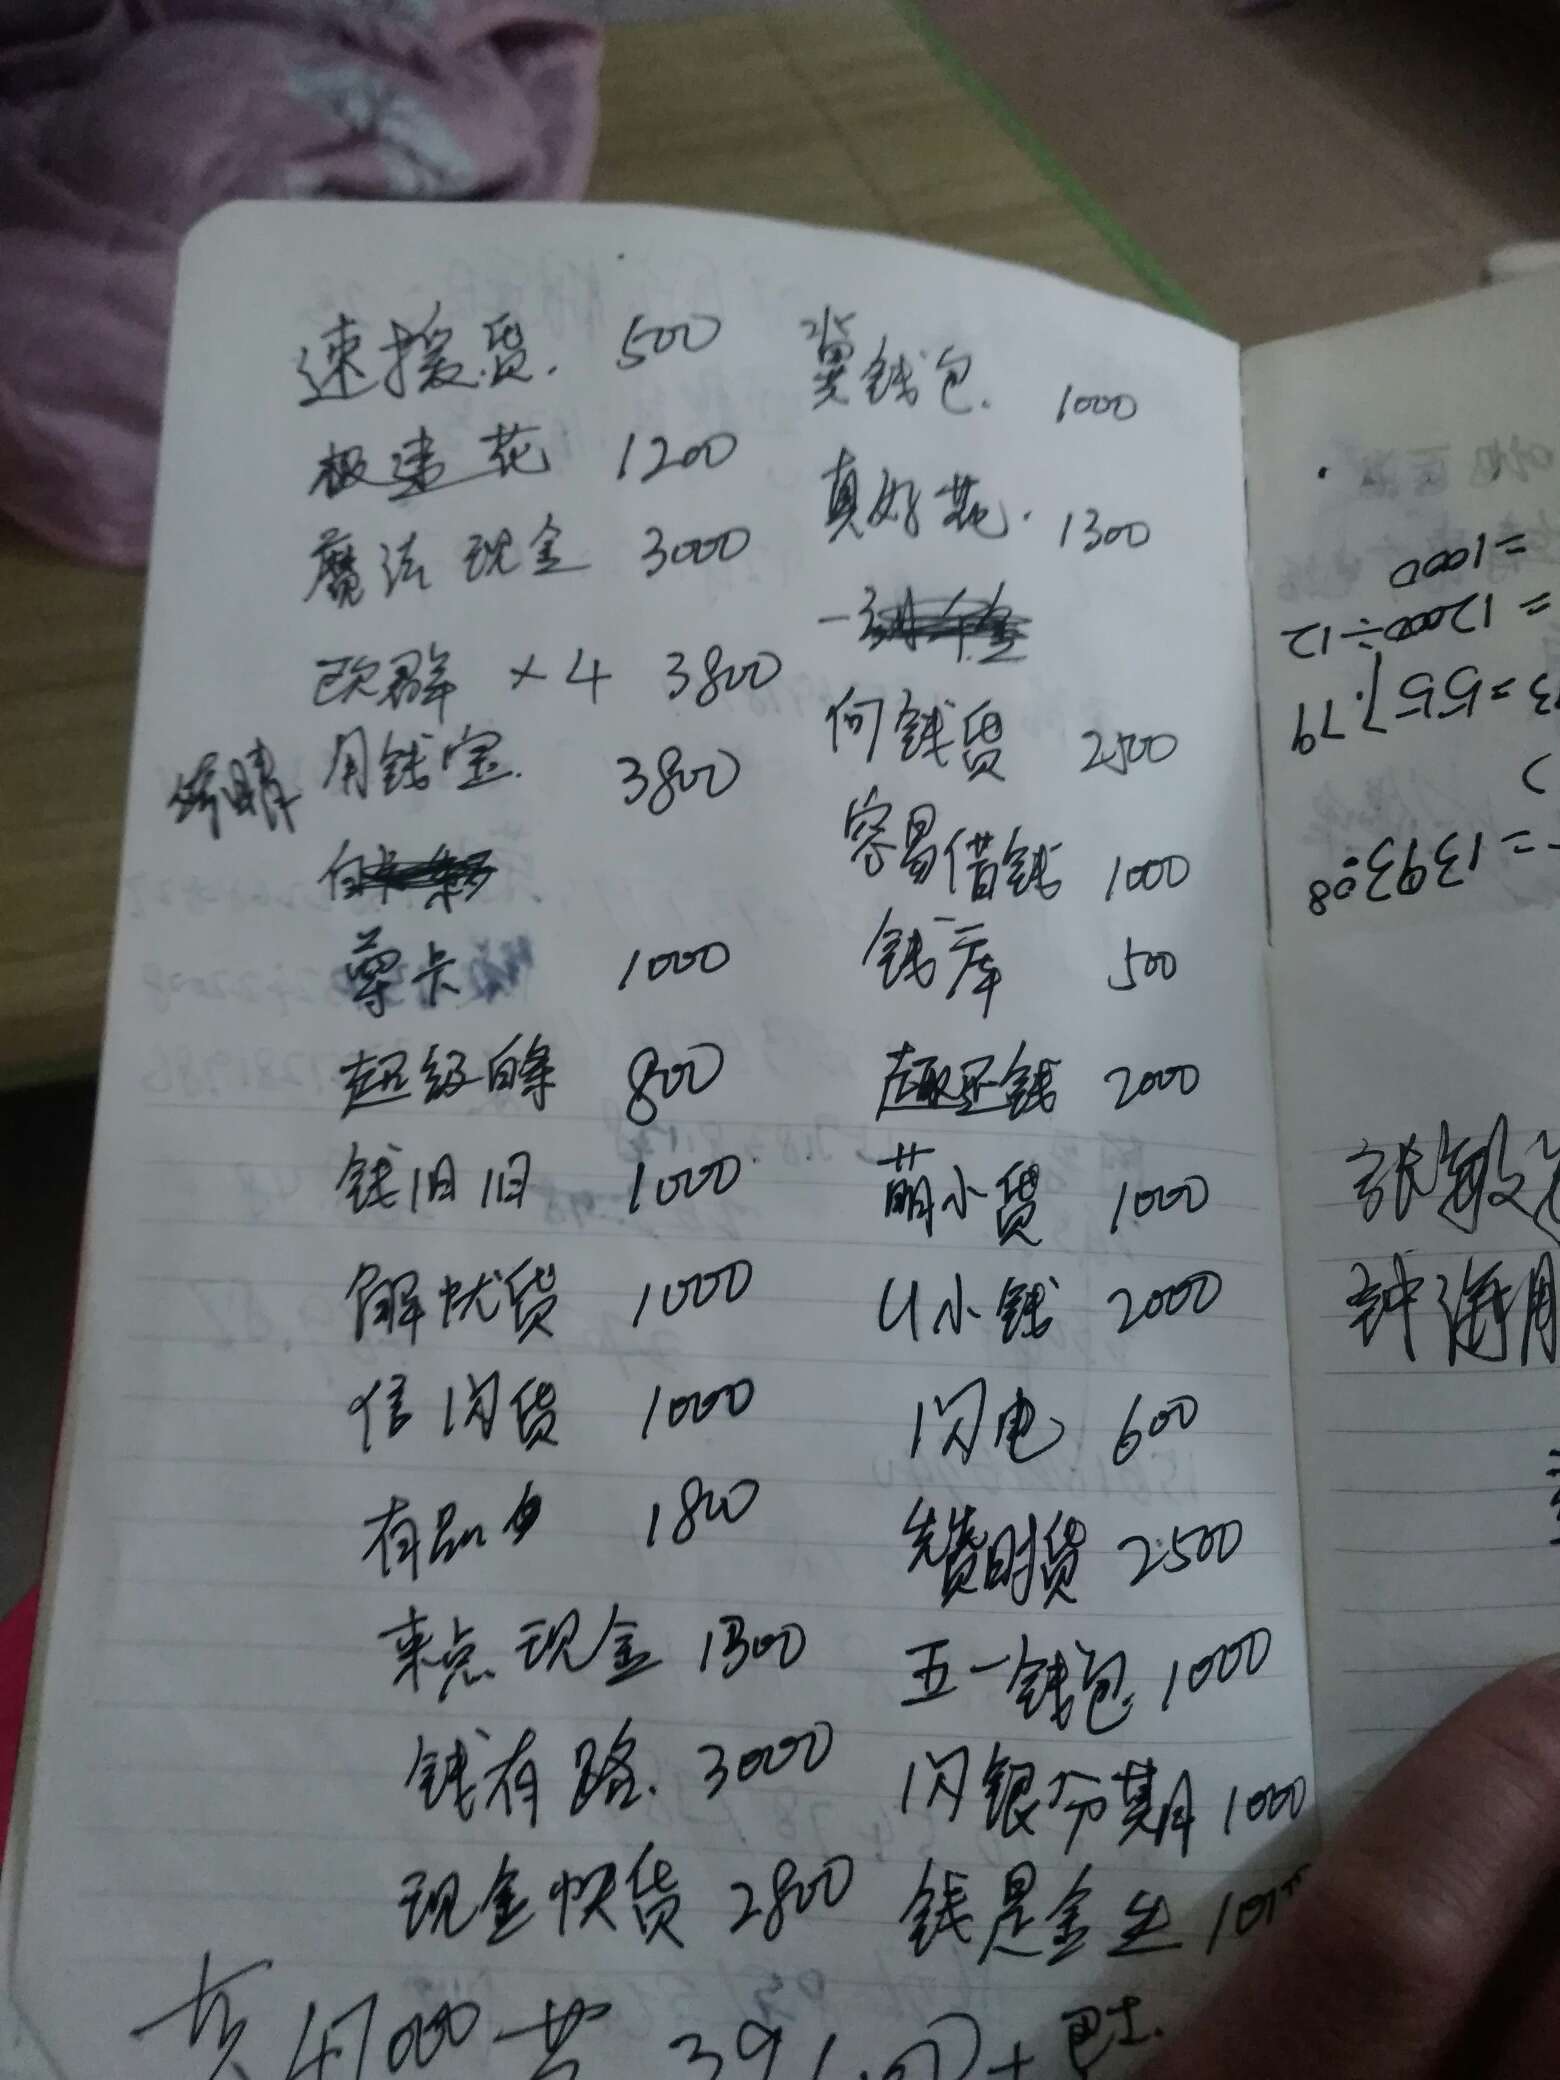 速援贷. 500
极速花 1200
魔法现金 3000
欧群 ×4 3800
用钱宝. 3800
尊卡 1000
超级白条 800
钱旧旧 1000
解忧贷 1000
信闪贷 1000
有品 1800
来点现金 1300
钱有路. 3000
现金快贷 2800
翼钱包. 1000
真好花. 1300
何钱贷 2500
容易借钱 1000
钱库 500
趣还钱 2000
萌小贷 1000
U小钱 2000
闪电 600
赞时贷 2500
五一钱包 1000
闪银分期 1000
钱是金
=1000
=12000÷12
3=557.79
=1393.08
张敏
钟海